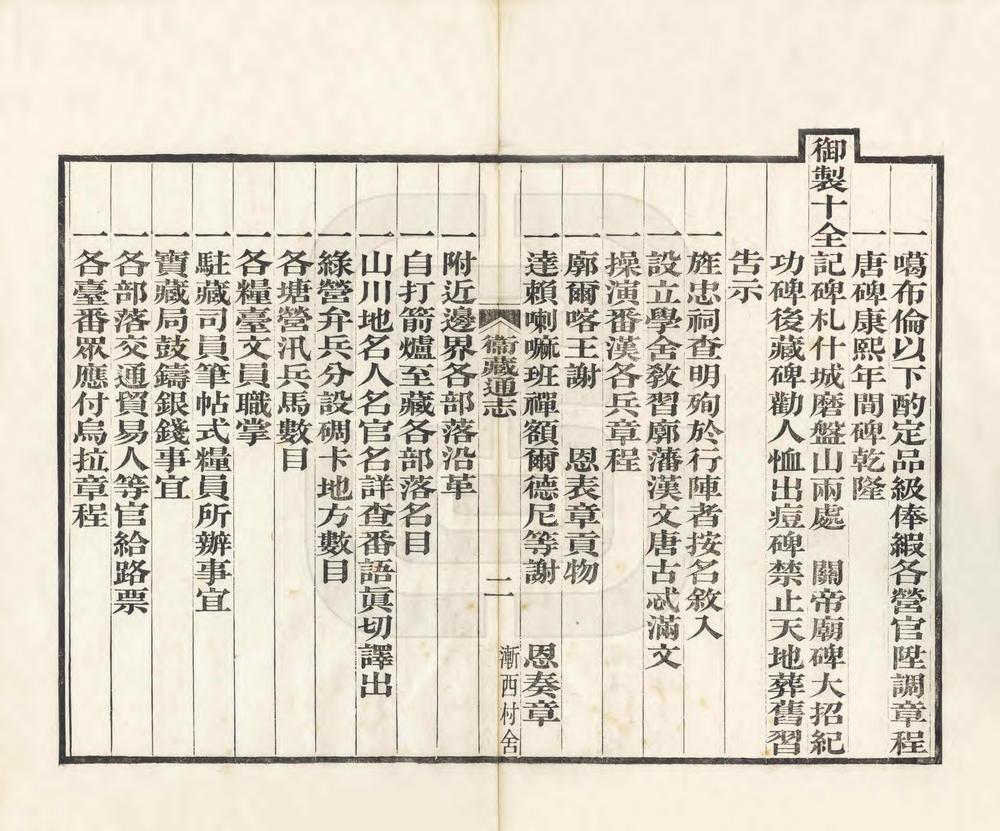 一噶布倫以下酌定品級俸緞各營官陞調章程
一唐碑康熙年間碑乾隆
御製十全記碑札什城磨盤山兩處 關帝廟碑大招紀
功碑後藏碑勸人恤出痘碑禁止天地葬舊習
告示
一旌忠祠查明殉於行陣者按名敘入
一設立學舍教習廓藩漢文唐古忒滿文
一操演番漢各兵章程
一廓爾喀王謝 恩表章貢物
一達賴喇嘛班禪額爾德尼等謝 恩奏章
衞藏通志 二 漸西村舍
一附近邊界各部落沿革
一自打箭爐至藏各部落名目
一山川地名人名官名詳查番語眞切譯出
一綠營弁兵分設碉卡地方數目
一各塘營汛兵馬數目
一各糧臺文員職掌
一駐藏司員筆帖式糧員所辦事宜
一寶藏局鼓鑄銀錢事宜
一各部落交通貿易人等官給路票
一各臺番眾應付烏拉章程